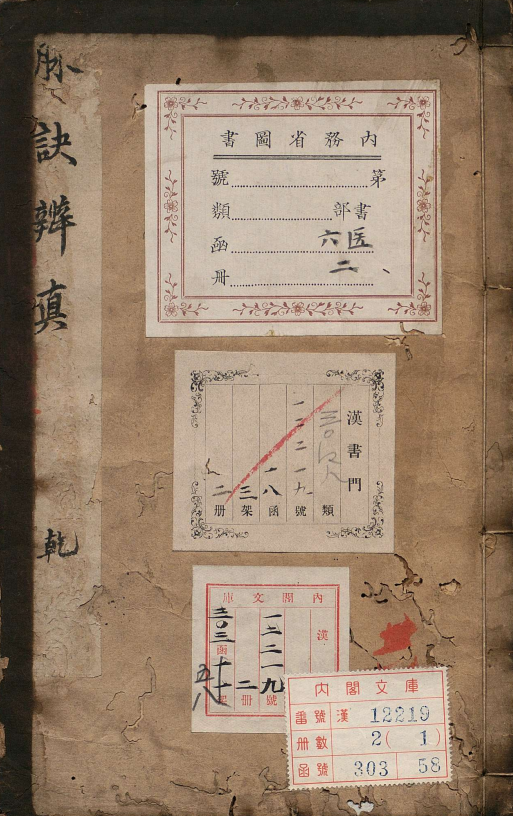 脉訣辨真 乾
內務省圖書
第 號
書部 類
医六 函
二 册
漢書門
三〇八
類
一二二一九 號
一八 函
三 架
二 册
內閣文庫
漢
一二二一九 號
二 册
三〇三 函
五八
十一 架
内閣文庫
番號 漢 12219
册數 2(1)
函號 303 58